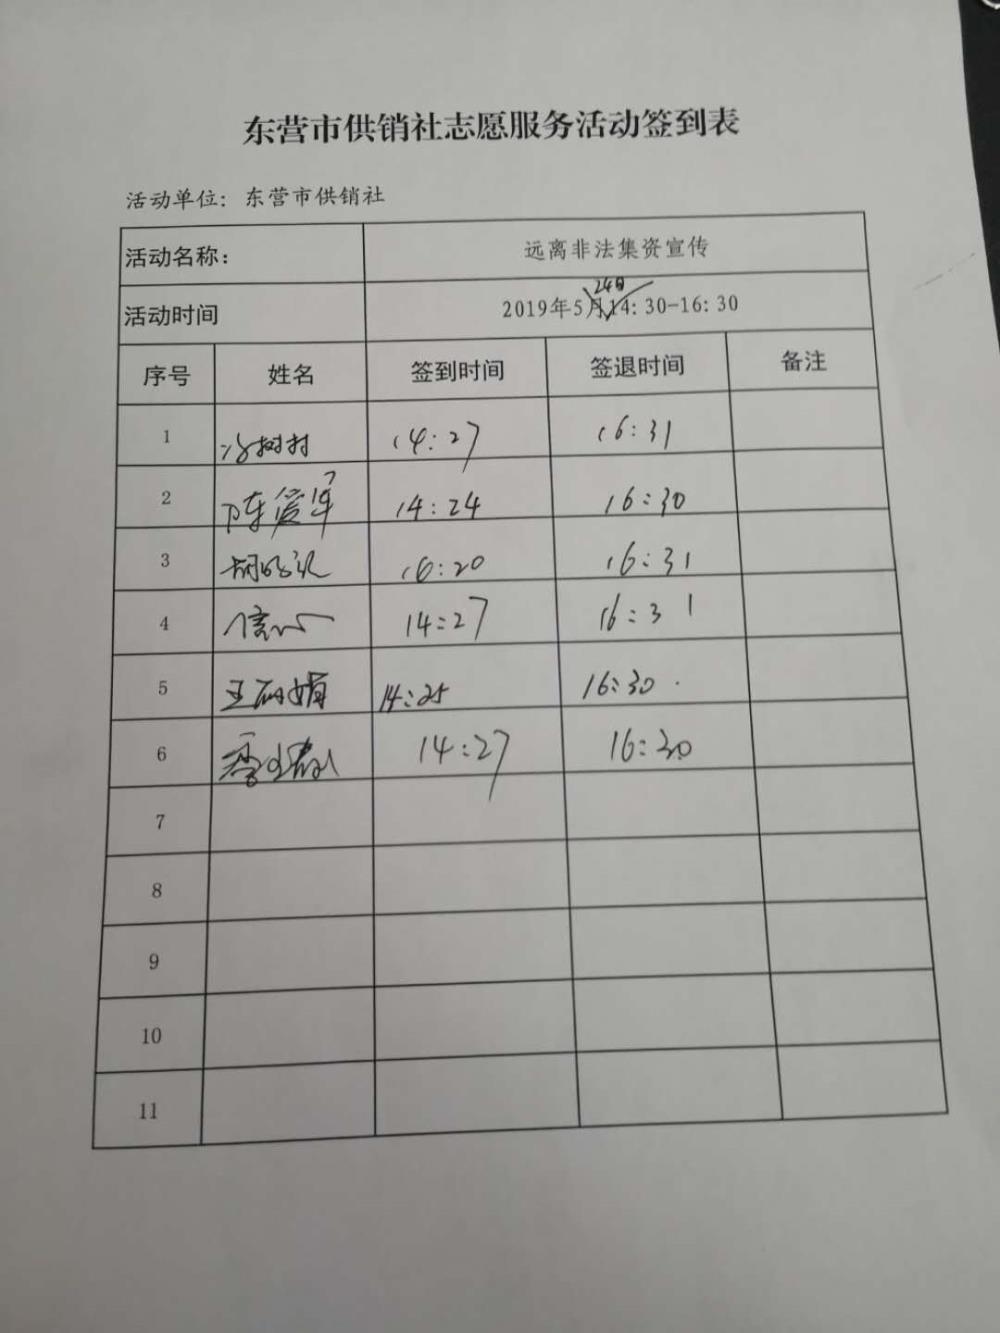 东营市供销社志愿服务活动签到表
活动单位：东营市供销社
活动名称： 远离非法集资宣传
24日
活动时间 2019年5月14：30-16：30
序号 姓名 签到时间 签退时间 备注
1 14:27 16:31
2 陈爱军 14:24 16:30
3 16:20 16:31
4 14:27 16:31
5 王丽娟 14:25 16:30
6 14:27 16:30
7
8
9
10
11